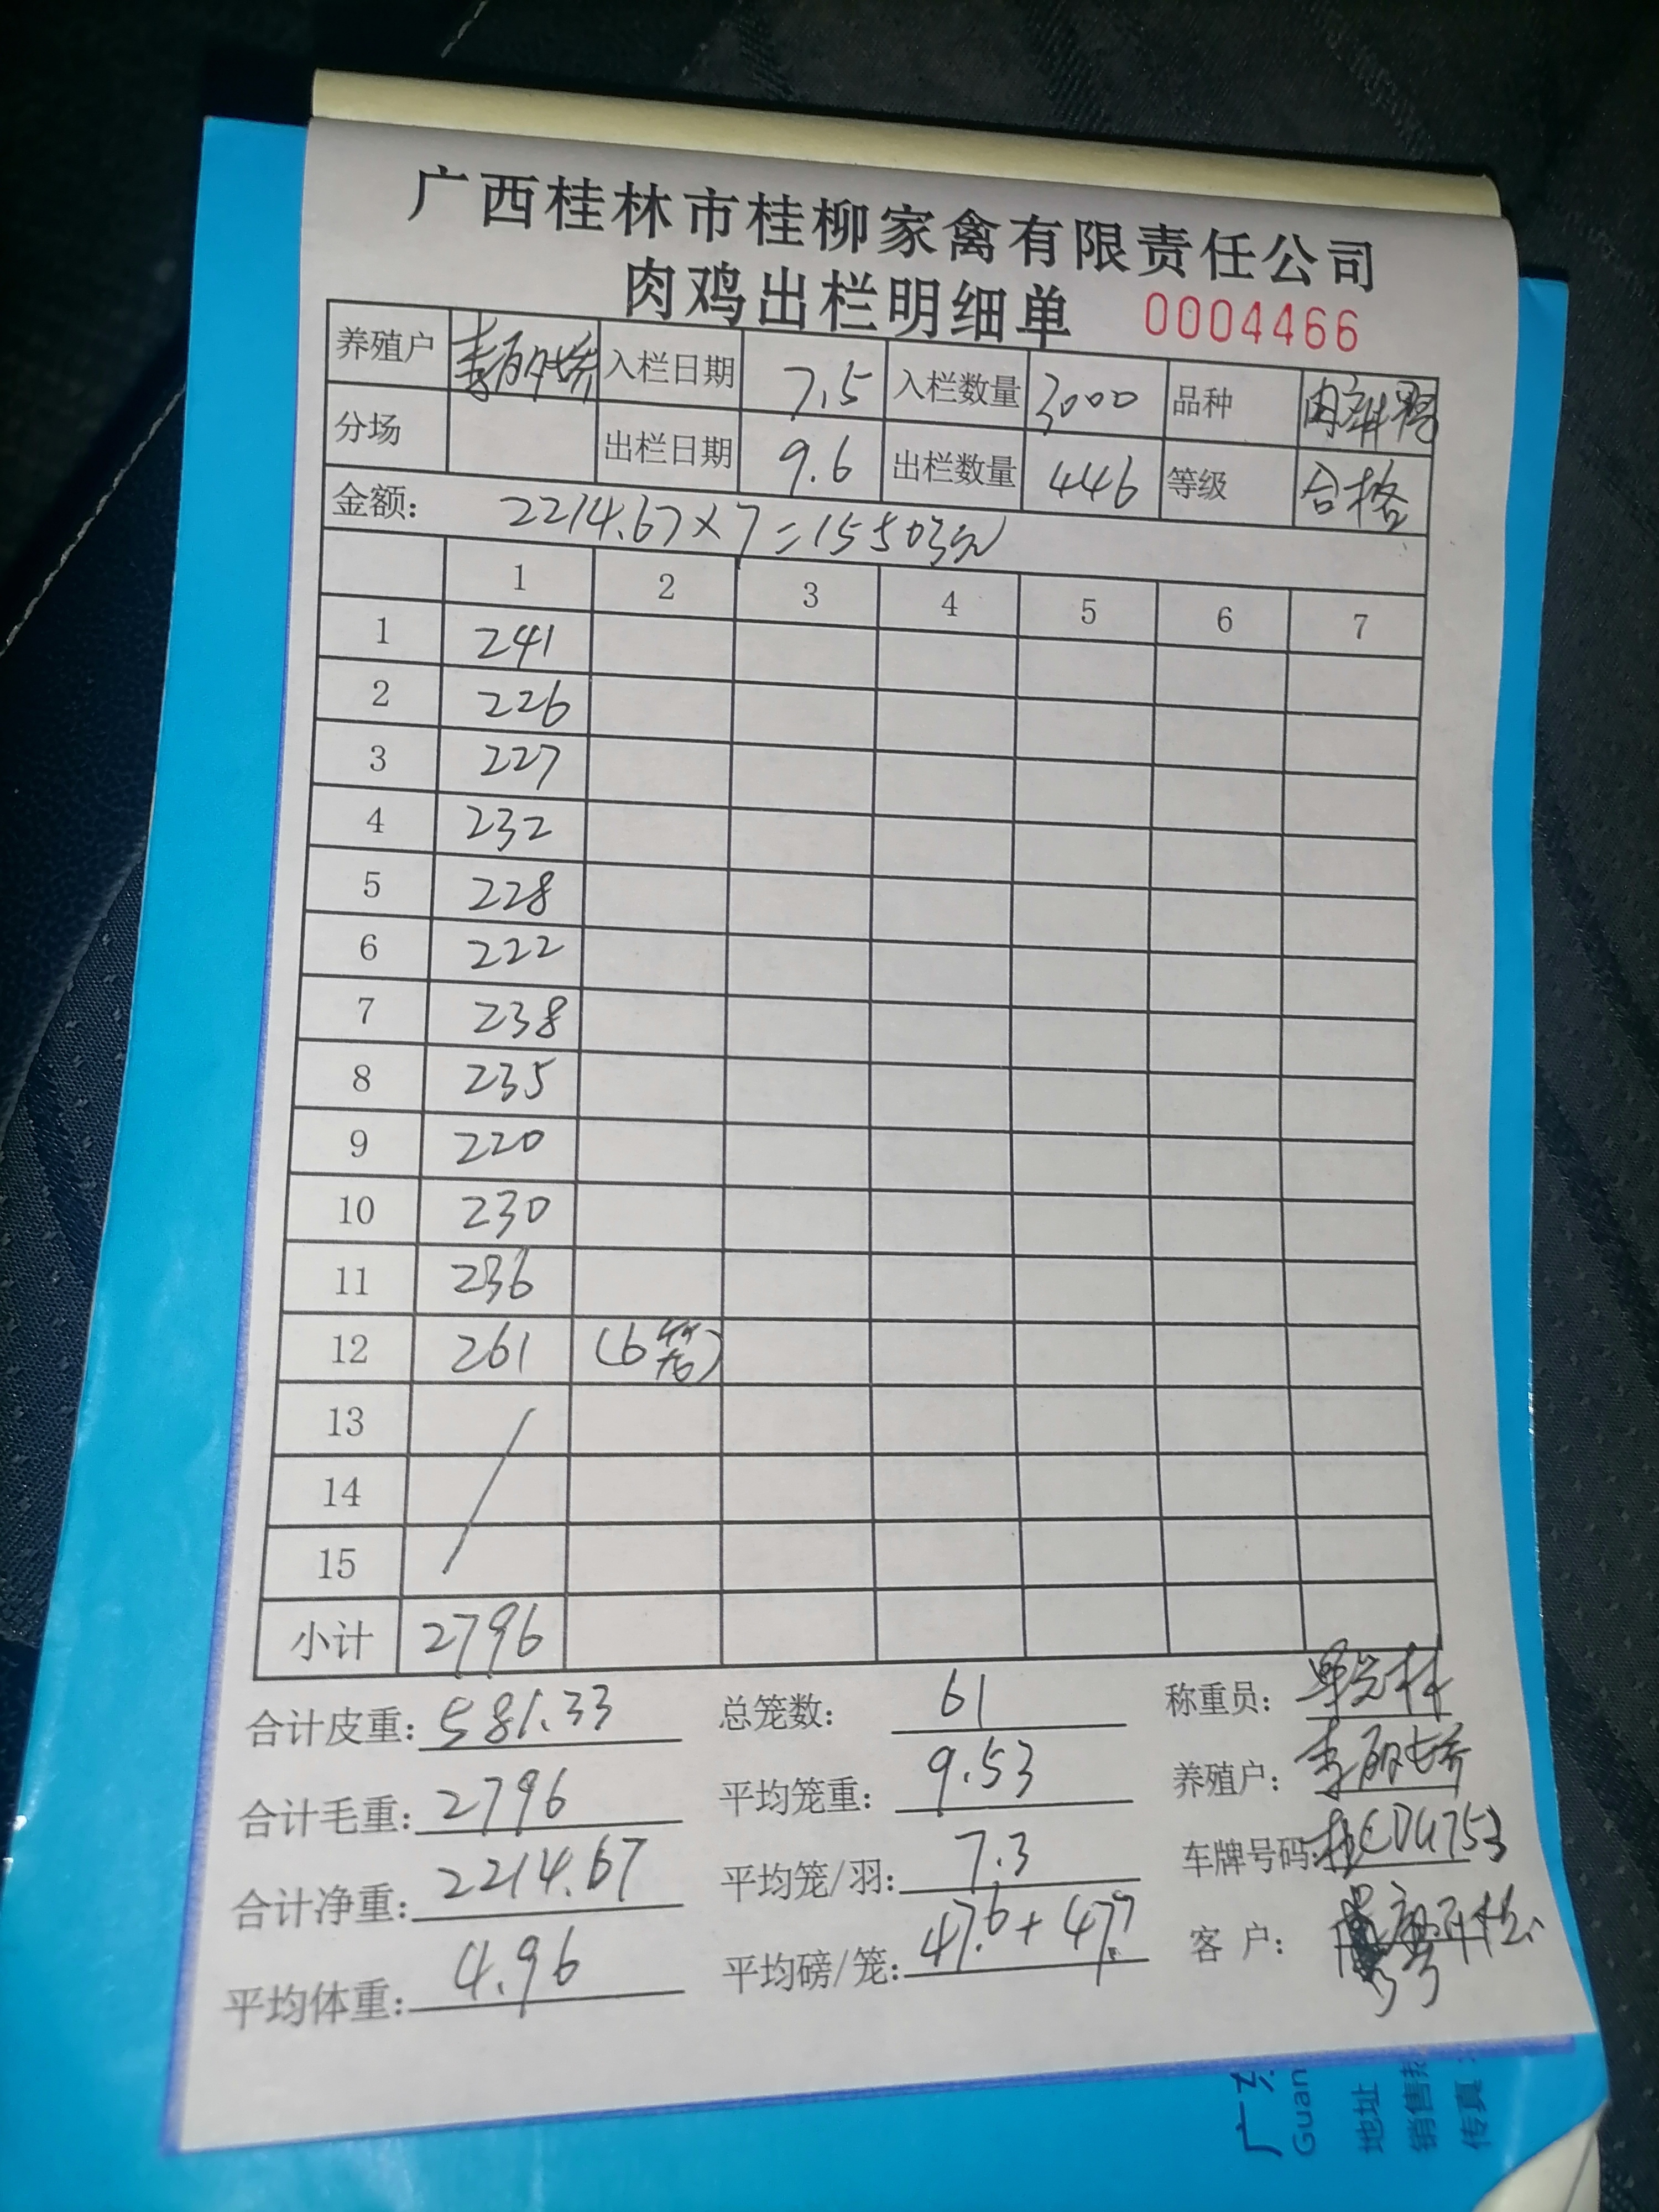 广西桂林市桂柳家禽有限责任公司
肉鸡出栏明细单 0004466
养殖户 李丽娇 入栏日期 7.5 入栏数量 3000 品种
分场 出栏日期 9.6 出栏数量 446 等级 合格
金额: 2214.67×7=15503元
1 2 3 4 5 6 7
1 241
2 226
3 227
4 232
5 228
6 222
7 238
8 235
9 220
10 230
11 236
12 261 (6笼)
13
14
15
小计 2796
合计皮重: 581.33 总笼数: 61 称重员:
合计毛重: 2796 平均笼重: 9.53 养殖户: 李丽娇
合计净重: 2214.67 平均笼/羽: 7.3 车牌号码:
平均体重: 4.96 平均磅/笼: 47.6+47.7 客 户:
广东
Guan
地址
销售热
传真: